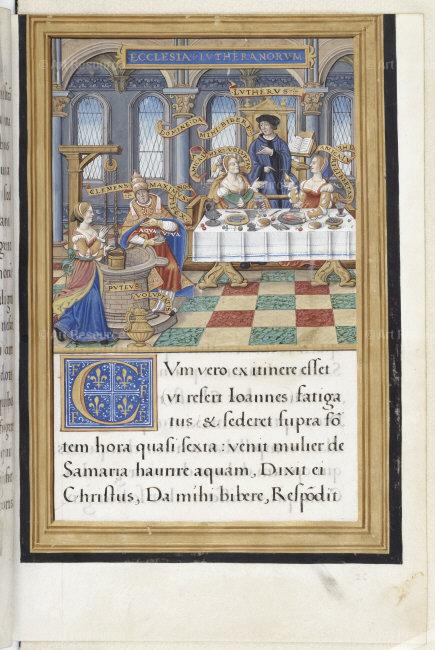 ECCLESIA LUTHERANORUM
LUTHERUS
DOMINE DA
MIHI BIBERE
CLEMENS
MAXIMUS
AQUA
PUTEUS
VOLUP
CVm vero ex itinere esset
vt refert Ioannes, fatiga
tus & sederet supra fõ
tem hora quasi sexta: venit mulier de
Samaria haurire aquam, Dixit ei
Christus, Da mihi bibere, Respõdit